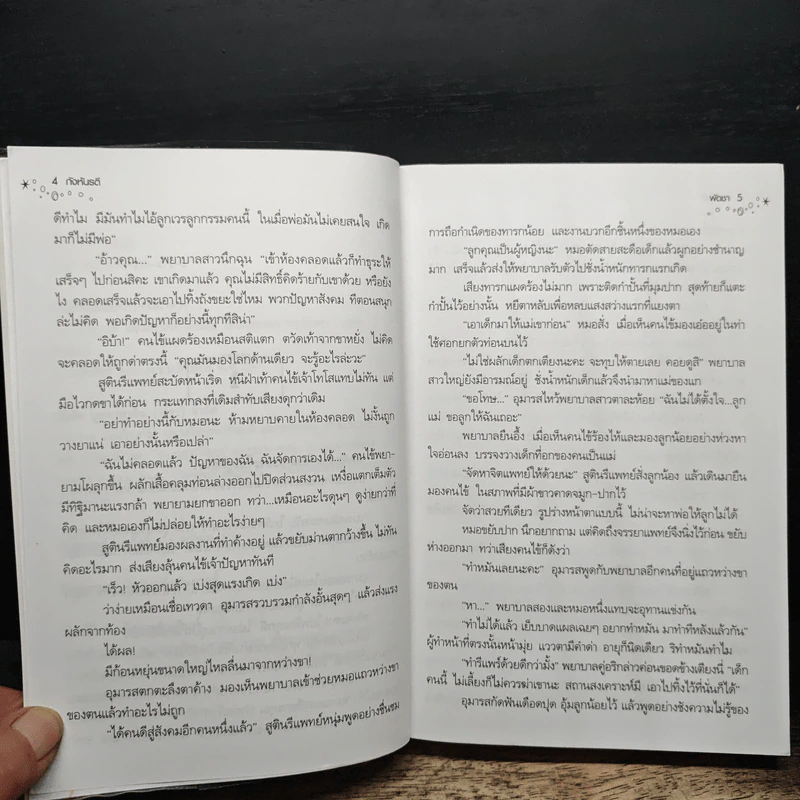 4 กังหันรติ
ดีทำไม มีมันทำไมไอ้ลูกเวรลูกกรรมคนนี้ ในเมื่อพ่อมันไม่เคยสนใจ เกิด
มาก็ไม่มีพ่อ”
“อ้าวคุณ...” พยาบาลสาวนึกฉุน “เข้าห้องคลอดแล้วก็ทำธุระให้
เสร็จๆ ไปก่อนสิคะ เขาเกิดมาแล้ว คุณไม่มีสิทธิ์คิดร้ายกับเขาด้วย หรือยัง
ไง คลอดเสร็จแล้วจะเอาไปทิ้งถังขยะใช่ไหม พวกปัญหาสังคม ทีตอนสนุก
ล่ะไม่คิด พอเกิดปัญหาก็อย่างนี้ทุกทีสิน่า”
“อีบ้า!” คนไข้แผดร้องเหมือนสติแตก ตวัดเท้าจากขาหยั่ง ไม่คิด
จะคลอดให้ถูกต่ำตรงนี้ “คุณมันมองโลกด้านเดียว จะรู้อะไรล่ะวะ”
สูตินรีแพทย์สะบัดหน้าเริ่ด หนีฝ่าเท้าคนไข้เจ้าโทโสแทบไม่ทัน แต่
มือไวกดขาได้ก่อน กระแทกลงที่เดิมสำทับเสียงดุกว่าเดิม
“อย่าทำอย่างนี้กับหมอนะ ห้ามหยาบคายในห้องคลอด ไม่งั้นถูก
วางยาแน่ เอาอย่างนั้นหรือเปล่า”
“ฉันไม่คลอดแล้ว ปัญหาของฉัน ฉันจัดการเองได้...” คนไข้พยา-
ยามโผลุกขึ้น ผลักเสื้อคลุมท่อนล่างออกไปปิดส่วนสงวน เหงื่อแตกเต็มตัว
มีทิฐิมานะแรงกล้า พยายามยกขาออก ทว่า...เหมือนอะไรดุนๆ ดูง่ายกว่าที่
คิด และหมอเองก็ไม่ปล่อยให้ทำอะไรง่ายๆ
สูตินรีแพทย์มองผลงานที่ทำค้างอยู่ แล้วขยับม่านตากว้างขึ้น ไม่ทัน
คิดอะไรมาก ส่งเสียงลุ้นคนไข้เจ้าปัญหาทันที
“เร็ว! หัวออกแล้ว เบ่งสุดแรงเกิด เบ่ง”
ว่าง่ายเหมือนเชื่อเทวดา อุมารสรวบรวมกำลังอั้นสุดๆ แล้วส่งแรง
ผลักจากท้อง
ได้ผล!
มีก้อนหยุ่นขนาดใหญ่ไหลลื่นมาจากหว่างขา!
อุมารสตกตะลึงตาค้าง มองเห็นพยาบาลเข้าช่วยหมอแถวหว่างขา
ของตนแล้วทำอะไรไม่ถูก
“ได้คนดีสู่สังคมอีกคนหนึ่งแล้ว” สูตินรีแพทย์หนุ่มพูดอย่างชื่นชม
พัดชา 5
การถือกำเนิดของทารกน้อย และงานบวกอีกชิ้นหนึ่งของหมอเอง
“ลูกคุณเป็นผู้หญิงนะ” หมอตัดสายสะดือเด็กแล้วผูกอย่างชำนาญ
มาก เสร็จแล้วส่งให้พยาบาลรับตัวไปชั่งน้ำหนักทารกแรกเกิด
เสียงทารกแผดร้องไม่มาก เพราะติดกำปั้นที่มุมปาก สุดท้ายก็แตะ
กำปั้นไว้อย่างนั้น หยีตาหลับเพื่อหลบแสงสว่างแรกที่แยงตา
“เอาเด็กมาให้แม่เขาก่อน” หมอสั่ง เมื่อเห็นคนไข้มองเอ๋ออยู่ในท่า
ใช้ศอกยกตัวท่อนบนไว้
“ไม่ใช่ผลักเด็กตกเตียงนะคะ จะทุบให้ตายเลย คอยดูสิ” พยาบาล
สาวใหญ่ยังมีอารมณ์อยู่ ชั่งน้ำหนักเด็กแล้วจึงนำมาหาแม่ของแก
“ขอโทษ...” อุมารสไหว้พยาบาลสาวตาละห้อย “ฉันไม่ได้ตั้งใจ...ลูก
แม่ ขอลูกให้ฉันเถอะ”
พยาบาลยืนอึ้ง เมื่อเห็นคนไข้ร้องไห้และมองลูกน้อยอย่างห่วงหา
ใจอ่อนลง บรรจงวางเด็กที่อกของคนเป็นแม่
“จัดหาจิตแพทย์ให้ด้วยนะ” สูตินรีแพทย์สั่งลูกน้อง แล้วเดินมายืน
มองคนไข้ ในสภาพที่มีผ้าขาวคาดจมูก-ปากไว้
จัดว่าสวยทีเดียว รูปร่างหน้าตาแบบนี้ ไม่น่าจะหาพ่อให้ลูกไม่ได้
หมอขยับปาก นึกอยากถาม แต่คิดถึงจรรยาแพทย์จึงนิ่งไว้ก่อน ขยับ
ห่างออกมา ทว่าเสียงคนไข้ก็ดังว่า
“ทำหมันเลยนะคะ” อุมารสพูดกับพยาบาลอีกคนที่อยู่แถวหว่างขา
ของตน
“หา...” พยาบาลสองและหมอหนึ่งแทบจะอุทานแข่งกัน
“ทำไม่ได้แล้ว เย็บบาดแผลเฉยๆ อยากทำหมัน มาทำทีหลังแล้วกัน”
ผู้ทำหน้าที่ตรงนั้นหน้ามุ่ย แววตามีคำด่า อายุก็นิดเดียว ริทำหมันทำไม
“ทำรีแพร์ด้วยดีกว่ามั้ง” พยาบาลคู่อริกล่าวค่อนขอดข้างเตียงนี่ “เด็ก
คนนี้ ไม่เลี้ยงก็ไม่ควรฆ่าเขานะ สถานสงเคราะห์มี เอาไปทิ้งไว้ที่นั่นก็ได้”
อุมารสกัดฟันเดือดปุด อุ้มลูกน้อยไว้ แล้วพูดอย่างชังความไม่รู้ของ